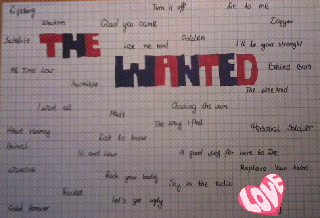 Turn it off
Lie to me
Warzone
Glad you came
Dagger
Satellite
THE
Golden
Like we never
I'll be your strength
WANTED
All Time Low
Behind Bars
Invincible
The weekend
I want it all
Chasing the sun
Made
The way I feel
Heart Vacancy
Personal Soldier
Animal
Last to know
Hi and low
A good day for love to Die
Replace Your heart
Rock your body
Say it on the Radio
Rocket
LOVE
Let's get ugly
Gold forever